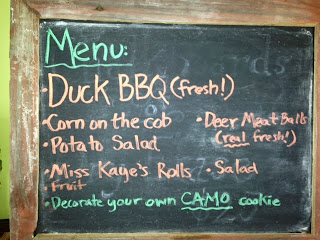 Menu:
• Duck BBQ (fresh!)
• Corn on the cob
• Potato Salad
• Deer Meat Balls
(real fresh!)
• Miss Kaye's Rolls
• Salad
• Fruit
• Decorate your own CAMO cookie